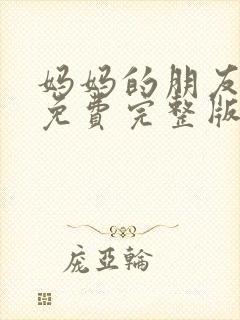 妈妈的朋友
免費完整版
庞亞輪